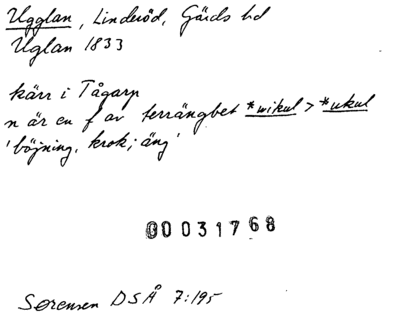 Ugglan, Linderöd, Gärds hd
Uglan 1833
kärr i Tågarp
n är en f av terrängbet *wikul > *ukul
'böjning, krok; äng'
00031768
Sørensen DSÅ 7:195